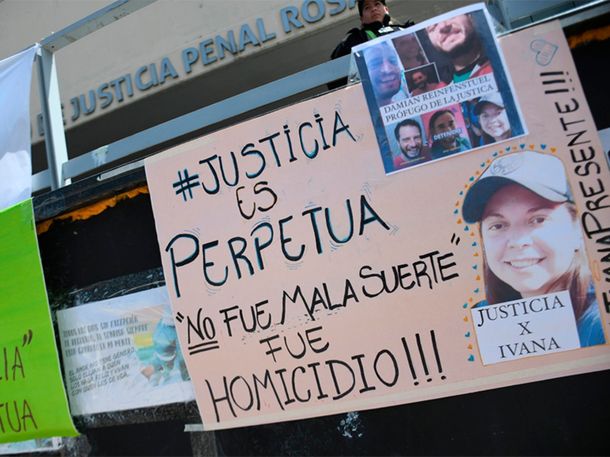 DE JUSTICIA PENAL ROSA
DAMIÁN REINFENSTUEL
PRÓFUGO DE LA JUSTICIA
DETENIDO
#JUSTICIA
ES
PERPETUA
"NO FUE MALA SUERTE"
FUE
HOMICIDIO!!!
JUSTICIA
X
IVANA
PRESENTE!!!
IA"
TUA